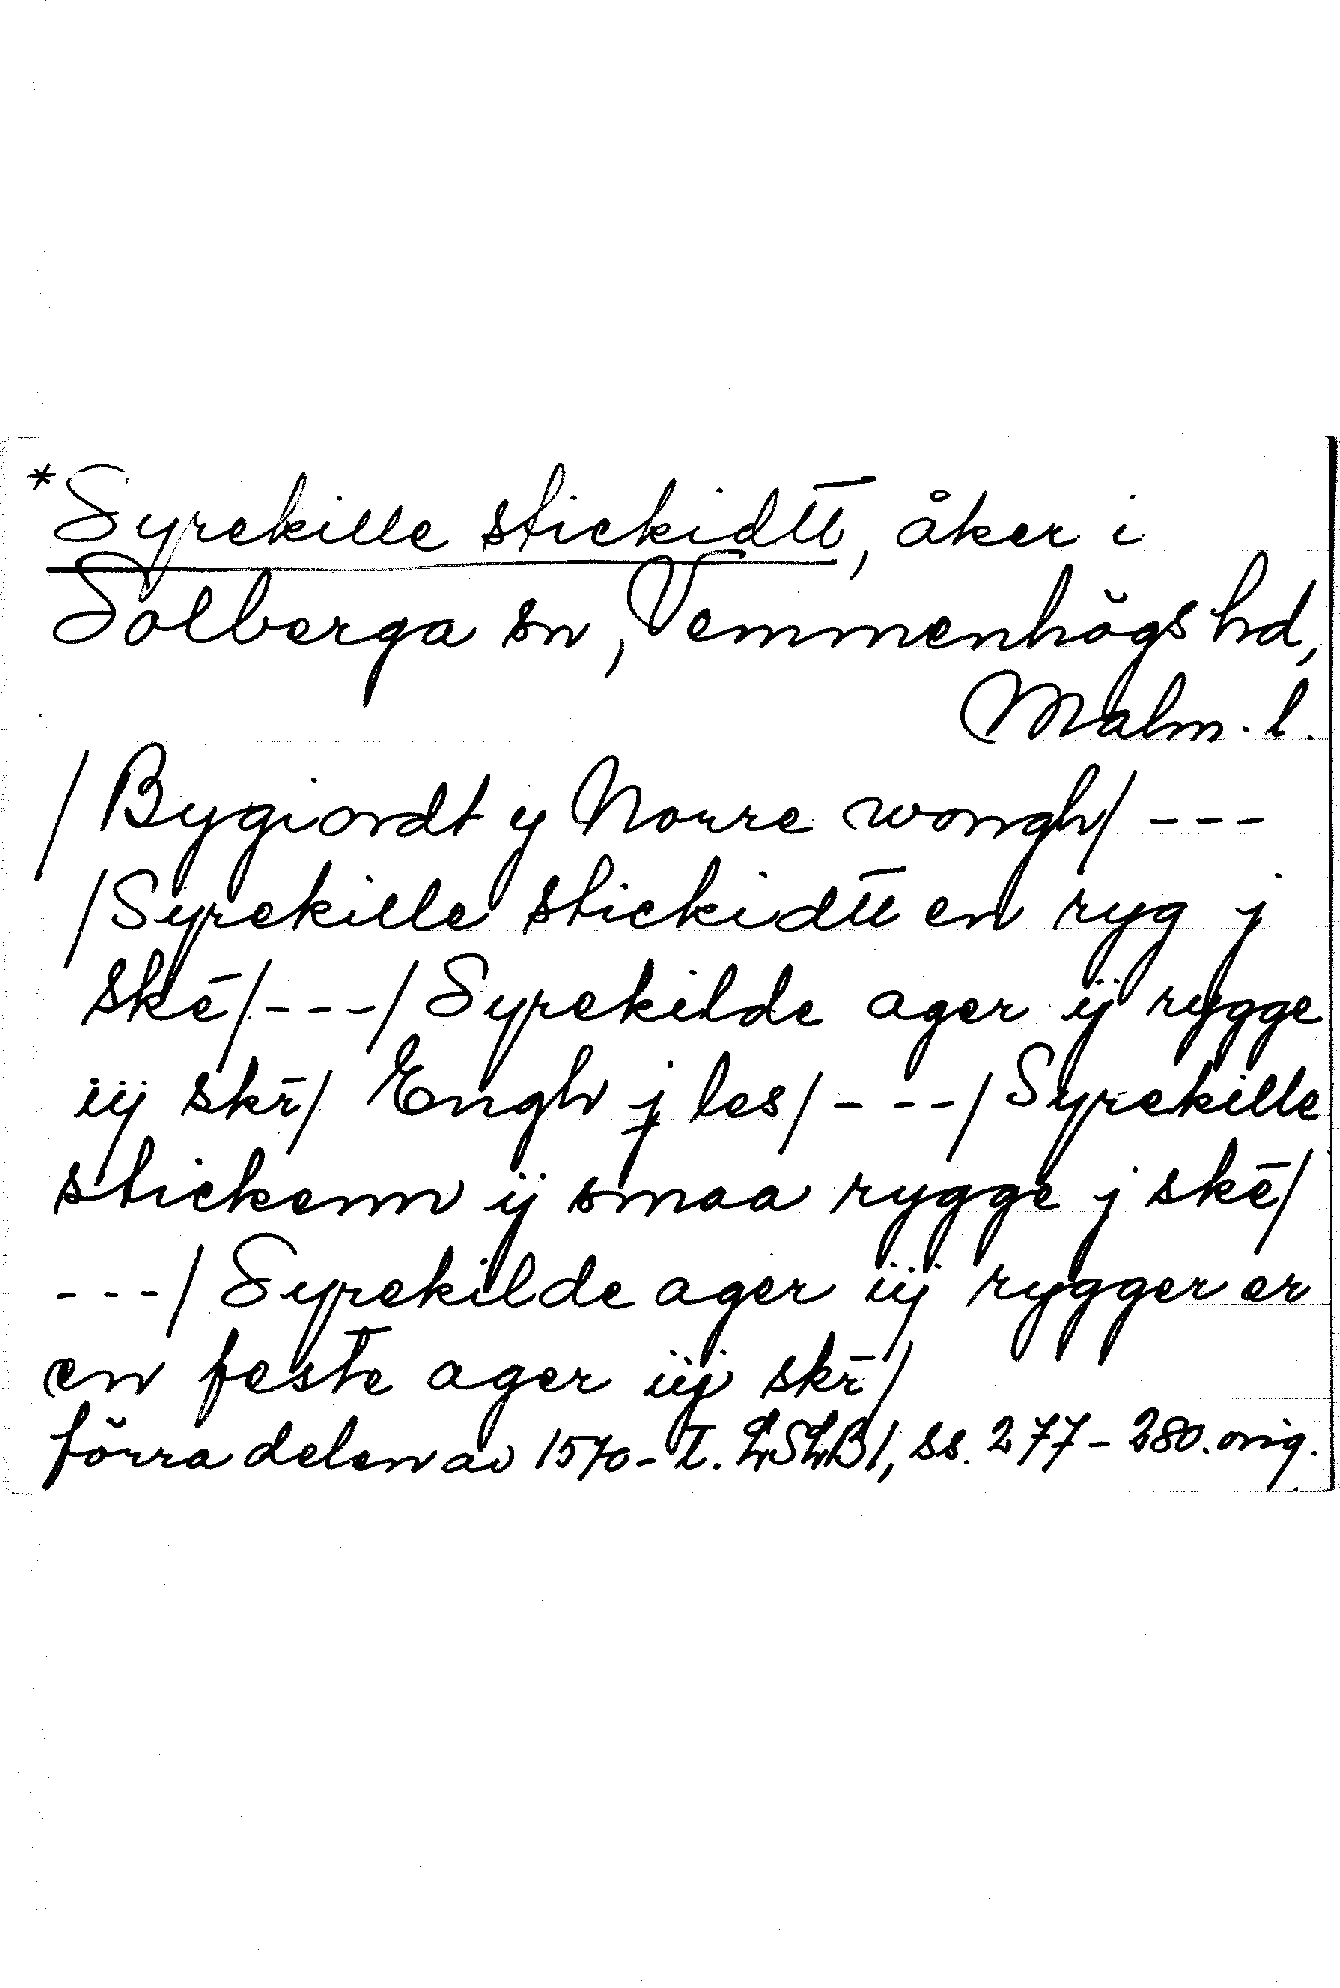 *Syrekille stickidtt, åker i
Solberga sn, Vemmenhögs hd,
Malm. l.
/Bygiordt y Norre wongh/ ---
/Syrekille stickidtt en ryg j
skē/---/Syrekilde ager ij rygge
iij skr̄/ Engh j les/---/Syrekille
stickenn ij smaa rygge j skē/
---/Syrekilde ager iij rygger er
en feste ager iij skr̄/
förra delen av 1570-t. LSLB 1, ss. 277-280. orig.